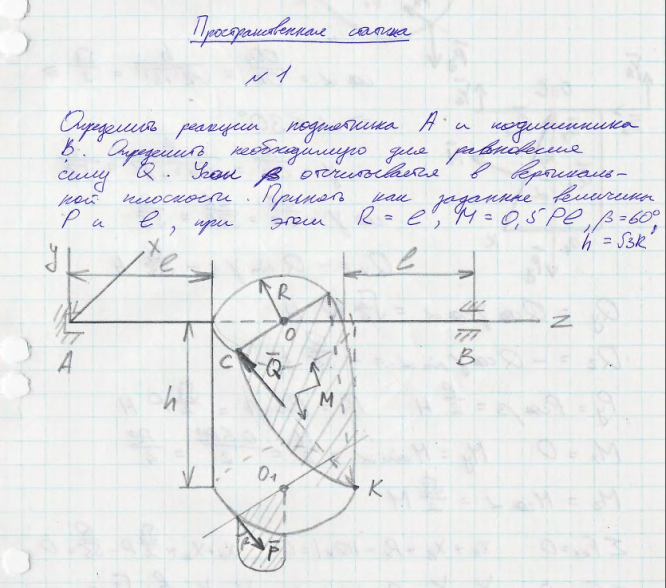 Пространственная статика
№ 1
Определить реакции подпятника A и подшипника
B. Определить необходимую для равновесия
силу Q. Угол β отсчитывается в вертикаль-
ной плоскости. Принять как заданные величины
P и l, при этом R = l, M = 0,5 Pl, β = 60°,
h = √3R
y x l l
R
A O B z
C Q M
h
O₁ K
P